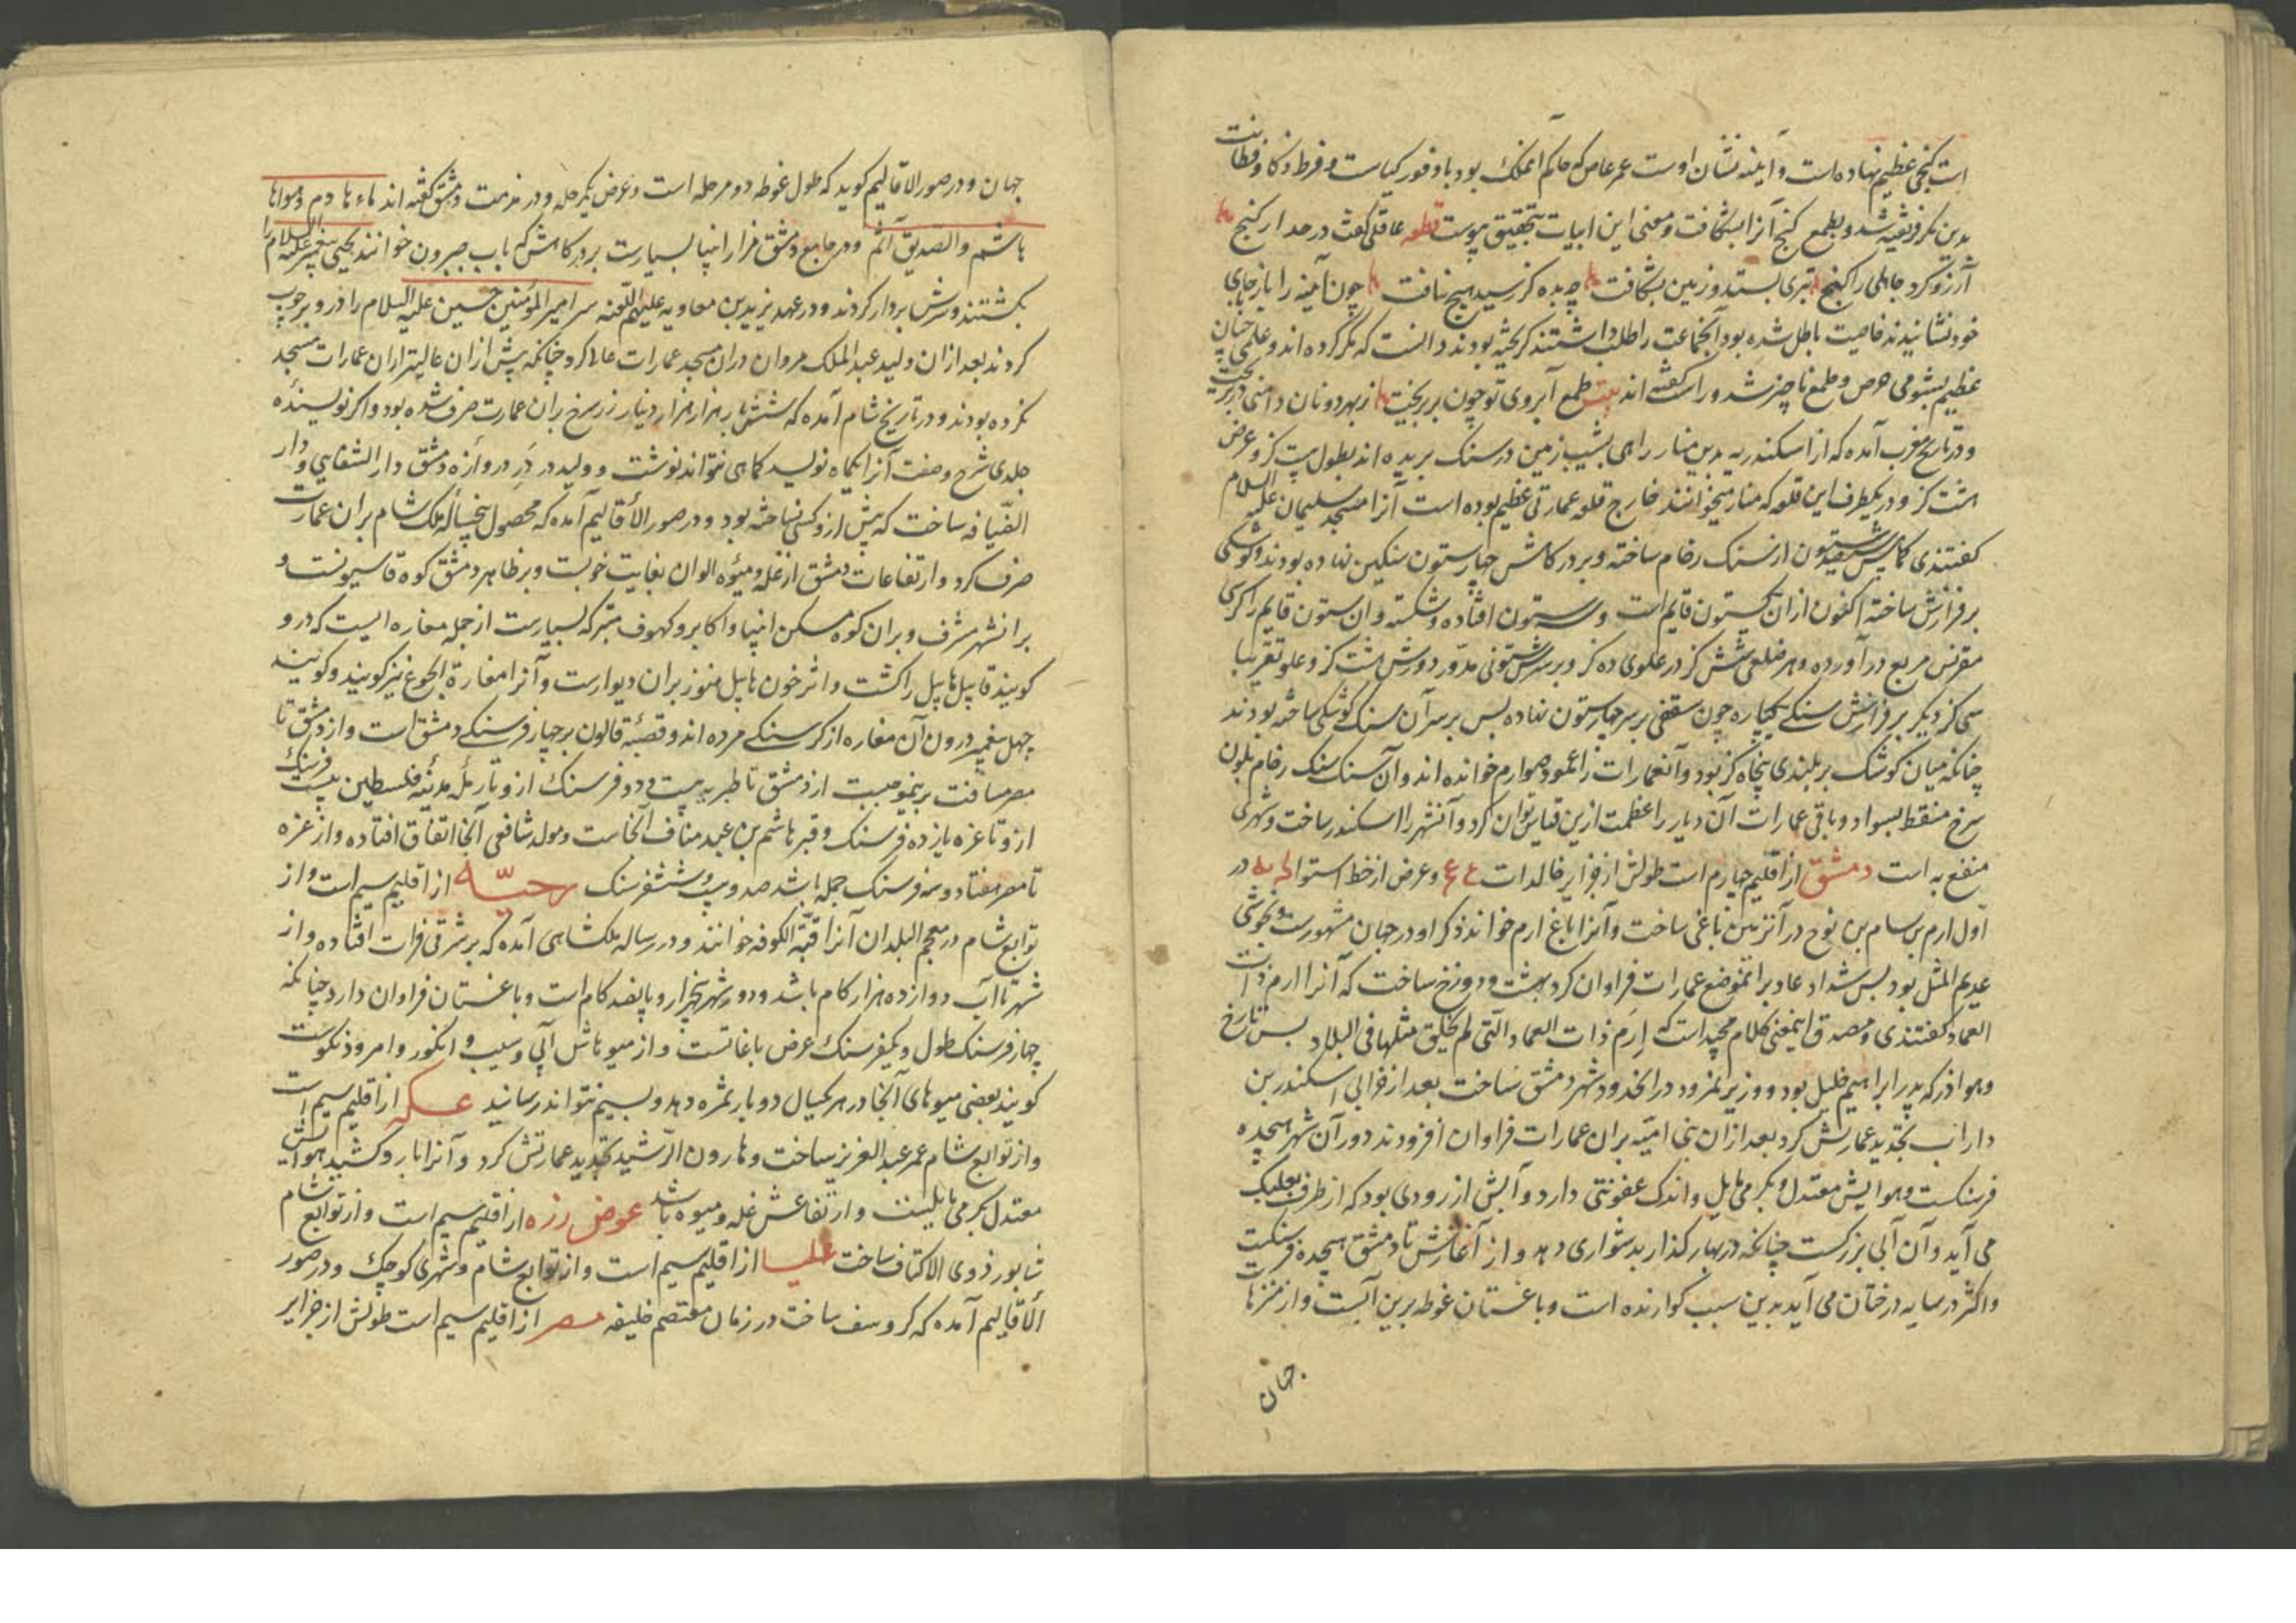 است گنجی عظیم نهاده است و آینه نشان اوست عمر عاص که حاکم آنملک بود با وفور کیاست و فرط ذکا و فطانت
بدین مکر فریفته شد و بطمع گنج آنرا بشکافت و معنی این ابیات بتحقیق پیوست قطعه عاقلی گفت در حد ار گنج
آرزو کرد جاهلی را گنج تبری بستد و زمین بشکافت چو بده گز رسید هیچ نیافت چون آینه را باز جای
خود نشانیدند خاصیت باطل شده بود آنجماعت را طلب داشتند گریخته بودند دانست که مکر کرده اند و علمی چنان
عظیم بشومی حرص و طمع ناچیز شد و راست گفته اند بیت طمع آبروی تو چون بر بریخت ز بهر دو نان دامنی در
و در تاریخ مغرب آمده که از اسکندریه بدین منار راهی بشیب زمین در سنک بریده اند بطول بیست گز و عرض
هشت گز و در یکطرف این قلعه که منار میخوانند خارج قلعه عمارتی عظیم بوده است آنرا مسجد سلیمان علیه السلام
گفتندی ستون از سنک رخام ساخته و بر درگاهش چهار ستون سنگین نهاده بودند و کوشکی
بر فرازش ساخته اکنون از آن یکستون قایم است و سه ستون افتاده و شکسته و ان ستون قایم را کرسی
مقرنس مربع در آورده و هر ضلعی شش گز در علوی ده گز و بر سرش ستونی مدوّر دورش هشت گز و علو تقریبا
سی گز دیگر بر فرازش سنگی یکپاره چون سقفی بر سر چهار ستون نهاده پس بر سر آن سنک کوشکی ساخته بودند
چنانکه میان کوشک بر بلندی پنجاه گز بود و آنعمارات را عمود صوارم خوانده اند و آن سنک رخام بلون
سرخ منقط بسواد و باقی عمارات آن دیار را عظمت ازین قیاس توان کرد و آنشهر را اسکندر ساخت و شهری
منتفع به است دمشق از اقلیم چهارم است طولش از جزایر خالدات ع ع و عرض از خط استوا لح یه در
اول ارم بن سام بن نوح در آنزمین باغی ساخت و آنرا باغ ارم خواند ذکر او در جهان مشهورست و بخوشی
عدیم المثل بود پس شداد عاد بر آنموضع عمارات فراوان کرد بهشت و دوزخ ساخت که آنرا ارم ذات
العماد گفتندی و مصدق اینمعنی کلام مجید است که اِرَم ذات العماد الّتی لم یخلق مثلها فی البلاد پس تارخ
و هو اذر که پدر ابراهیم خلیل بود و وزیر نمرود در آنحدود شهر دمشق ساخت بعد از خرابی اسکندر بن
داراب بتجدید عمارتش کرد بعد ازان بنی امیّه بران عمارات فراوان افزودند دور آن شهر هیجده
فرسنگست و هوایش معتدل و بگرمی مایل و اندک عفونتی دارد و آبش از رودی بود که از طرف بعلبک
می آید و آن آبی بزرگست چنانکه در بهار گذار بدشواری دهد و از آغازش تا دمشق هیجده فرسنگست
و اکثر در سایه درختان می آید بدین سبب گوارنده است و باغستان غوطه برین آبست و از منتزهات
جهان
جهان و در صور الاقالیم گوید که طول غوطه دو مرحله است و عرض یکمرحله و در مذمت دمشق گفته اند ماءها دم و هواها
هاشم والصدیق آثم و در جامع دمشق مزار انبیا بسیارست بر درگاهش که باب جیرون خوانند یحیی پیغمبر علیه السلام را
بکشتند و سرش بر دار کردند و در عهد یزید بن معاویه علیهم اللّعنه سر امیر المؤمنین حسین علیه السلام را در و بر چوب
کردند بعد از ان ولید عبد الملک مروان در ان مسجد عمارات عالی کرد چنانکه پیش از ان عالیتر از ان عمارات مسجد
نکرده بودند و در تاریخ شام آمده که شش بار هزار هزار دینار زر سرخ بران عمارت صرف شده بود و اگر نویسندهٔ
جلدی شرح و صفت آنرا یکماه نویسد کماهی نتواند نوشت و ولید در در دروازه دمشق دار الشفایی و دار
الضیافه ساخت که پیش ازو کسی نساخته بود و در صور الأقالیم آمده که محصول پنجساله ملک شام بران عمارت
صرف کرد و ارتفاعات دمشق از غله و میوه الوان بغایت خوبست و بر ظاهر دمشق کوه قاسیونست و
بر انشهر مشرف و بران کوه مسکن انبیا و اکابر و کهوف متبرکه بسیارست از جمله مغاره ایست که درو
گویند قابیل هابیل را کشت و اثر خون هابیل هنوز بران دیوارست و آنرا مغارة الجوع نیز گویند و گویند
چهل پیغمبر درون آن مغاره از گرسنگی مرده اند و قصبهٔ قالون بر چهار فرسنگی دمشق است و از دمشق تا
مصر مسافت برینموجبست از دمشق تا طبریه بیست و دو فرسنک ازو تا رملهٔ مدینهٔ فلسطین بیست فرسنک
ازو تا غزه یازده فرسنک و قبر هاشم بن عبد مناف آنجاست و مولد شافعی آنجا اتفاق افتاده و از غزه
تا مصر هفتاد و سه فرسنک جمله باشد صد و بیست و شش فرسنک رحبّه از اقلیم سیم است و از
توابع شام در معجم البلدان آنرا قبّة الکوفه خوانند و در رساله ملکشاهی آمده که بر شرقی فرات افتاده و از
شهر تا آب دوازده هزار گام باشد و دور شهر پنجهزار و پانصد گام است و باغستان فراوان دارد چنانکه
چهار فرسنک طول و یکفرسنک عرض باغاتست و از میوهاش آبی و سیب و انگور و امرود نیکوست
گویند بعضی میوهای آنجا در هر یکسال دو بار ثمره دهد و بسیم نتواند رسانید عسکه از اقلیم سیم است
و از توابع شام عمر عبد العزیز ساخت و هارون الرّشید تجدید عمارتش کرد و آنرا بارو کشید هوایش
معتدل بگرمی مایلست و ارتفاعش غله و میوه باشد عوض رزه از اقلیم سیم است و از توابع شام
شابور ذوی الاکتاف ساخت علیسا از اقلیم سیم است و از توابع شام و شهری کوچک و در صور
الأقالیم آمده که کروسف ساخت در زمان معتصم خلیفه مصر از اقلیم سیم است طولش از جزایر